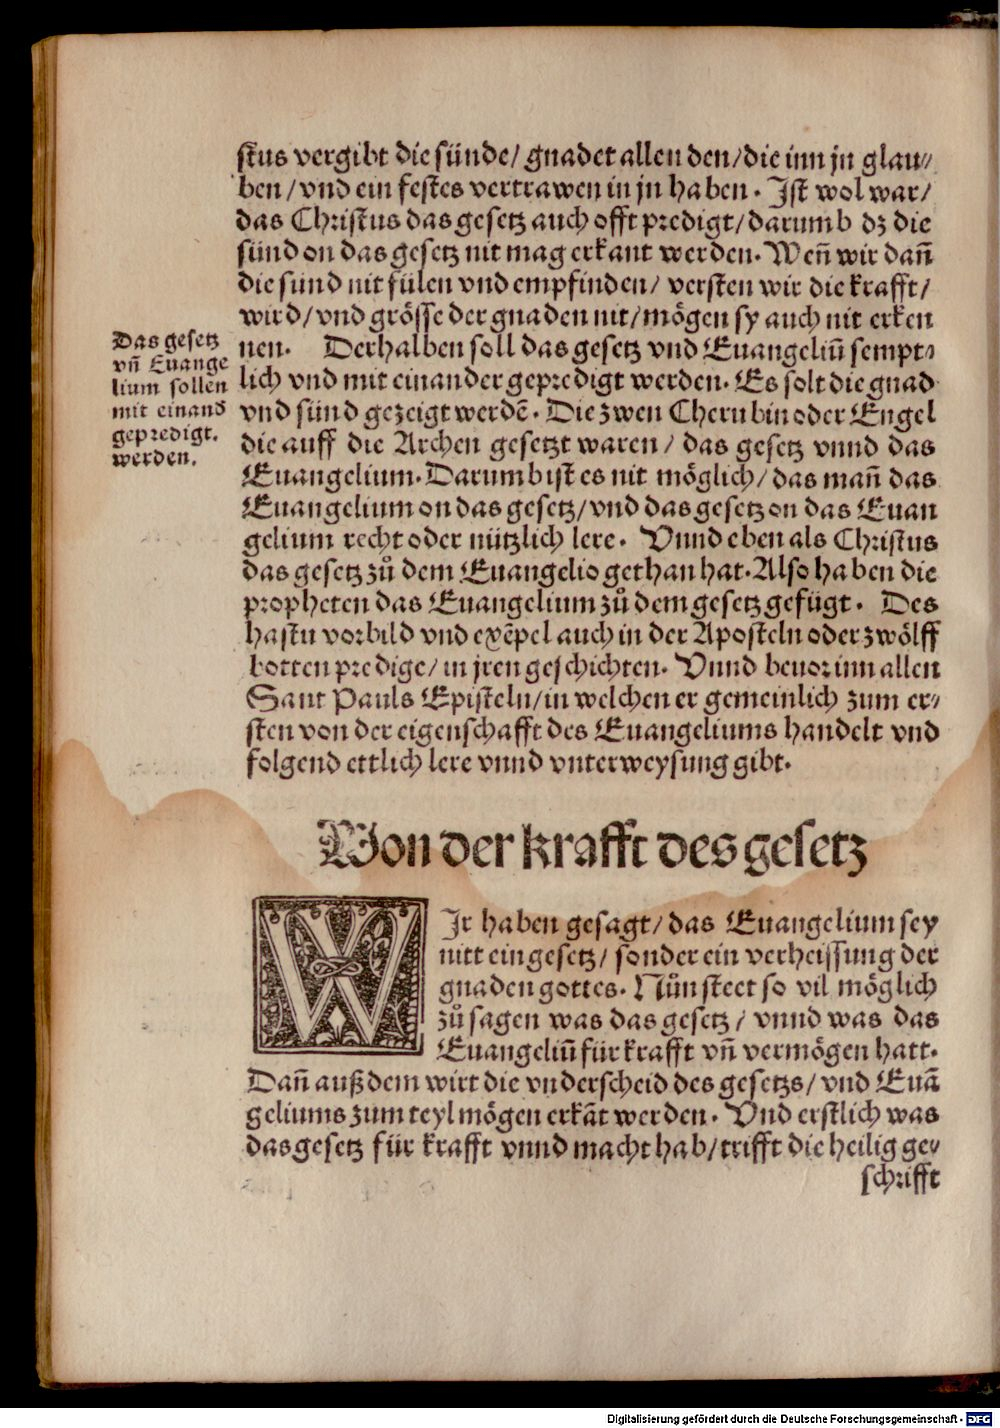 stus vergibt die sünde/ gnadet allen den/die inn jn glau⸗
ben/vnd ein festes vertrawen in jn haben. Jst wol war/
das Christus das gesetz auch offt predigt/darumb dz die
sünd on das gesetz nit mag erkant werden. Weñ wir dañ
die sünd nit fülen vnd empfinden/ versten wir die krafft/
wird/vnd grösse der gnaden nit/mögen sy auch nit erken
nen. Derhalben soll das gesetz vnd Euangeliũ sempt⸗
lich vnd mit einander gepredigt werden. Es solt die gnad
vnd sünd gezeigt werdẽ. Die zwen Cherubin oder Engel
die auff die Archen gesetzt waren/ das gesetz vnnd das
Euangelium. Darumb ist es nit möglich/das mañ das
Euangelium on das gesetz/vnd das gesetz on das Euan
gelium recht oder nützlich lere. Vnnd eben als Christus
das gesetz zů dem Euangelio gethan hat. Also haben die
propheten das Euangelium zů dem gesetz gefügt. Des
hastu vorbild vnd exẽpel auch in der Aposteln oder zwölff
botten predige/in jren geschichten. Vnnd beuor inn allen
Sant Pauls Episteln/in welchen er gemeinlich zum er⸗
sten von der eigenschafft des Euangeliums handelt vnd
folgend ettlich lere vnnd vnterweysung gibt.
Das gesetz
vñ Euange
lium sollen
mit einand
gepredigt.
werden.
Von der krafft des gesetz
WJr haben gesagt/das Euangelium sey
nitt ein gesetz/ sonder ein verheissung der
gnaden gottes. Nůn steet so vil möglich
zů sagen was das gesetz/ vnnd was das
Euangeliũ für krafft vñ vermögen hatt.
Dañ auß dem wirt die vnderscheid des gesetzs/ vnd Euã
geliums zum teyl mögen erkãt werden. Vnd erstlich was
das gesetz für krafft vnnd macht hab/trifft die heilig ge⸗
schrifft
Digitalisierung gefördert durch die Deutsche Forschungsgemeinschaft - DFG